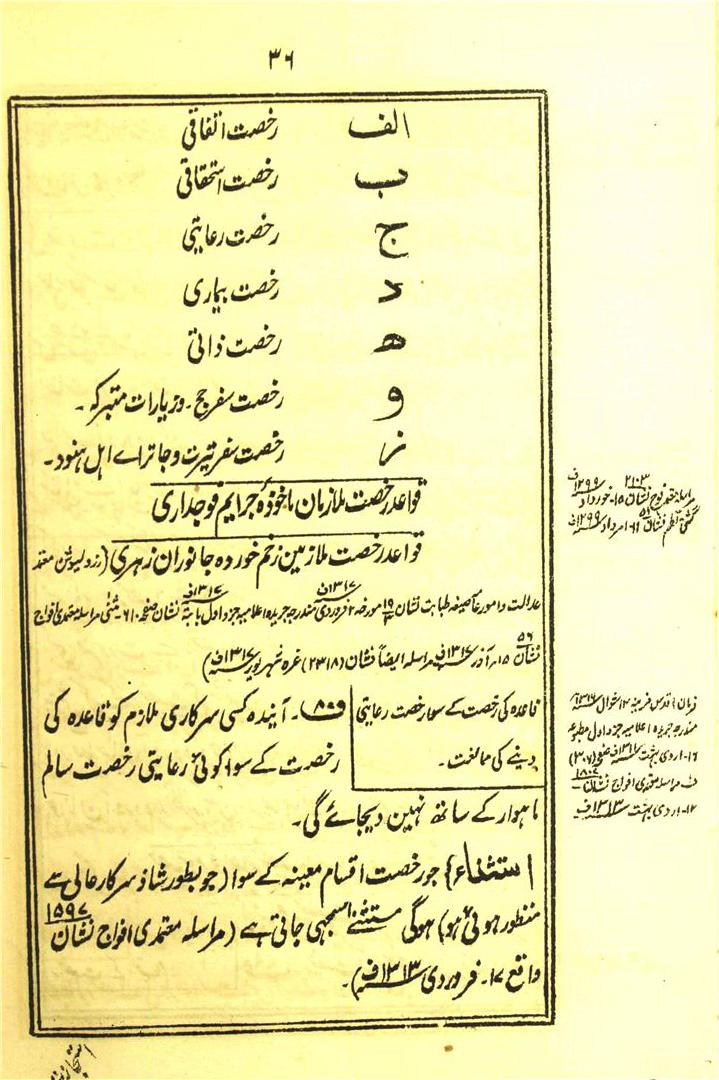 ۳۶
الف رخصت اتفاقی
ب رخصت استحقاقی
ج رخصت رعایتی
د رخصت بیماری
ھ رخصت ذاتی
و رخصت سفر حج ۔ وزیارات متبرکہ ۔
ز رخصت سفر تیرت وجاتراے اہل ہنود ۔
قواعد رخصت ملازمان ماخوذہ جرایم فوجداری
قواعد رخصت ملازمین زخم خوردہ جانوران زہری (رزولیوشن معتمد
عدالت وامور عامہ صیغہ طبابت نشان ۱۹/۳ مورخہ ۲ فروردی ۱۳۱۷ف مندرجہ جریدہ اعلامیہ جزو اول بابتہ ۱۳۱۷ف نشان صفحہ ۶۱۰ ۔ مثنی مراسلہ معتمدی افواج
نشان ۵۶ ۱۵ ر آذر ۱۳۱۷ف مراسلہ ایضاً نشان (۲۳۱۸) غرہ شہریور ۱۳۱۷ف)
قاعدہ کی رخصت کے سوار خصت رعایتی
دینے کی ممالغت ۔
۔ آیندہ کسی سرکاری ملازم کو قاعدہ کی
رخصت کے سوا کوئی رعایتی رخصت سالم
ماہوار کے ساتھ نہین دیجاے گی ۔
استثناء} جو رخصت اقسام معینہ کے سوا (جو بطور شاذ سرکار عالی سے
منظور ہوئی ہو) ہوگی مستثنے سمجہی جاتی ہے (مراسلہ معتمدی افواج نشان ۱۵۹۷
واقع ۱۷ ۔ فروردی ۱۳۱۳ف) ۔
نشان ۲۱۰۳ ۱۵ ۔ خورداد ۱۲۹۹ف
گشتی نظم نشان ۵۱ ۱۶ امرداد ۱۲۹۹ف
مندرجہ جریدہ اعلامیہ جزو اول مطبوعہ
۱۶ ۔ اردی بہشت ۱۳۱۱ف صفحہ (۳۰۷)
ف مراسلہ معتمدی افواج نشان ۱۸۰۲
۱۲ ۔ اردی بہشت ۱۳۱۳ف